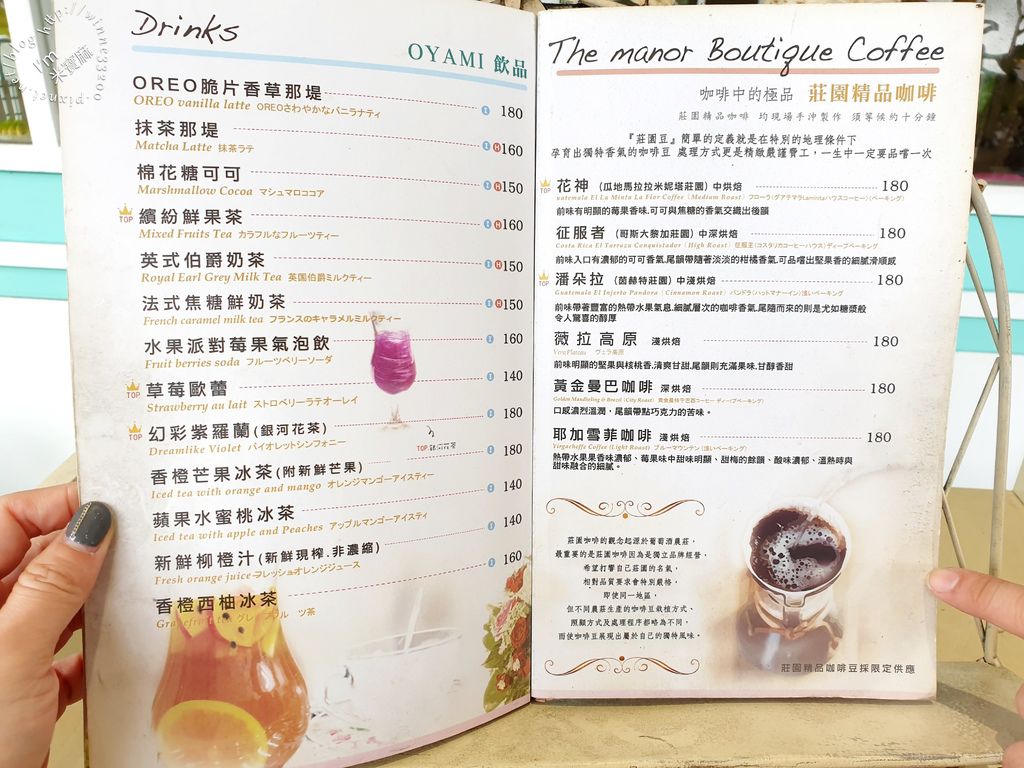 Drinks
OYAMI 飲品
OREO脆片香草那堤 180
OREO vanilla latte OREOさわやかなバニラナティ
抹茶那堤 H160
Matcha Latte 抹茶ラテ
棉花糖可可 H150
Marshmallow Cocoa マシュマロココア
TOP 繽紛鮮果茶 H160
Mixed Fruits Tea カラフルなフルーツティー
英式伯爵奶茶 H150
Royal Earl Grey Milk Tea 英国伯爵ミルクティー
法式焦糖鮮奶茶 H150
French caramel milk tea フランスのキャラメルミルクティー
水果派對莓果氣泡飲 160
Fruit berries soda フルーツベリーソーダ
TOP 草莓歐蕾 140
Strawberry au lait ストロベリーラテオーレイ
TOP 幻彩紫羅蘭(銀河花茶) 180
Dreamlike Violet バイオレットシンフォニー
TOP.銀河花茶
香橙芒果冰茶(附新鮮芒果) 180
Iced tea with orange and mango オレンジマンゴーアイスティー
蘋果水蜜桃冰茶 140
Iced tea with apple and Peaches アップルマンゴーアイスティ
新鮮柳橙汁(新鮮現榨.非濃縮) 140
Fresh orange juice フレッシュオレンジジュース
香橙西柚冰茶 160
The manor Boutique Coffee
咖啡中的極品 莊園精品咖啡
莊園精品咖啡 均現場手沖製作 須等候約十分鐘
『莊園豆』簡單的定義就是在特別的地理條件下
孕育出獨特香氣的咖啡豆 處理方式更是精緻嚴謹費工,一生中一定要品嚐一次
TOP 花神 (瓜地馬拉拉米妮塔莊園)中烘焙 180
uatemala El La Minta La Flor Coffee (Medium Roast) フローラ(グアテマラLamintaハウスコーヒー)(ベーキング)
前味有明顯的莓果香味.可可與焦糖的香氣交織出後韻
征服者 (哥斯大黎加莊園)中深烘焙 180
Costa Rica El Tarrazu Conquistador (High Roast) 征服王(コスタリカコーヒーハウス)ディープベーキング
前味入口有濃郁的可可香氣.尾韻帶隨著淡淡的柑橘香氣.可品嚐出堅果香的細膩滑順感
TOP 潘朵拉 (茵赫特莊園)中淺烘焙 180
Guatemala El Injerto Pandora (Cinnamon Roast) パンドラ(ハットマナーイン)浅いベーキング
前味帶著豐富的熱帶水果氣息.細膩層次的咖啡香氣.尾隨而來的則是尤如糖漿般
令人驚喜的醇厚
薇拉高原 淺烘焙 180
Vera Plateau ヴェラ高原
前味明顯的堅果與核桃香.清爽甘甜.尾韻則充滿果味.甘醇香甜
黃金曼巴咖啡 深烘焙 180
Golden Mandheling & Brezil (City Roast) 黄金曼特宁巴西コーヒー ディープベーキング)
口感濃烈溫潤,尾韻帶點巧克力的苦味。
耶加雪菲咖啡 淺烘焙 180
Yirgacheffe Coffee (Light Roast) ブルーマウンテン(浅いベーキング)
熱帶水果果香味濃郁、莓果味中甜味明顯、甜梅的餘韻、酸味濃郁、溫熱時與
甜味融合的細膩。
莊園咖啡的觀念起源於葡萄酒農莊,
最重要的是莊園咖啡因為是獨立品牌經營,
希望打響自己莊園的名氣,
相對品質要求會特別嚴格,
即使同一地區,
但不同農莊生產的咖啡豆栽植方式、
照顧方式及處理程序都略為不同,
而使咖啡豆展現出屬於自己的獨特風味。
莊園精品咖啡豆採限定供應